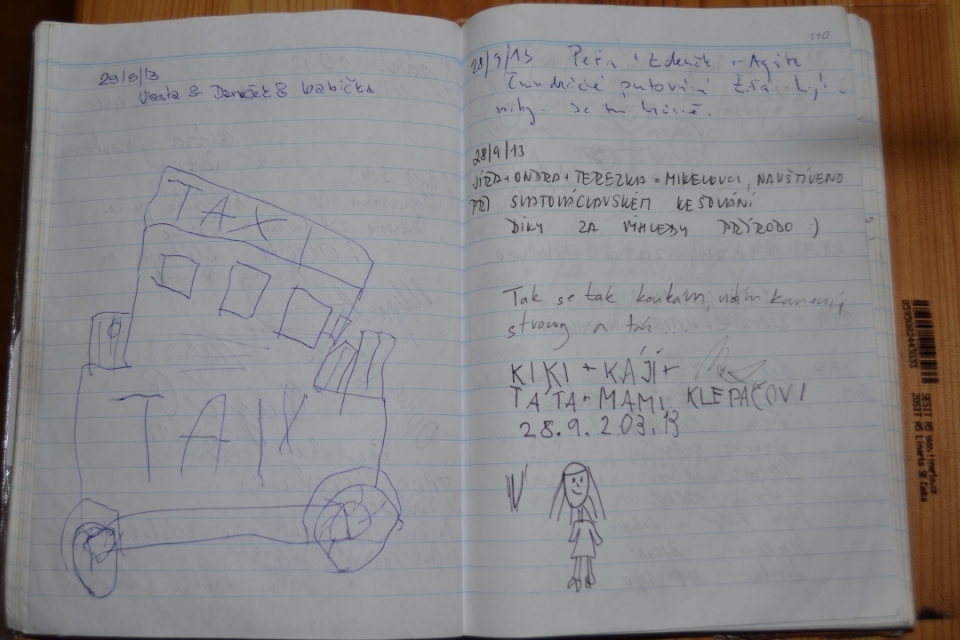 29/9/13
Vlasta & Daneček & babička
TAXI
TAIX
110
28/9/13 Peťa, Zdeněk + Agita
putování
Je tu krásně.
28/9/13
JÍRA + ONDRA + TEREZKA = MIKELOVCI, NAVŠTÍVENO
PŘI SVATOVÁCLAVSKÉM KEŠOVÁNÍ
DÍKY ZA VÝHLEDY PŘÍRODO :)
Tak se tak koukám, vidím kamení,
stromy a tak
KIKI + KÁJÍ +
TÁTA + MAMI KLEPAČOVI
28.9.2.03.13